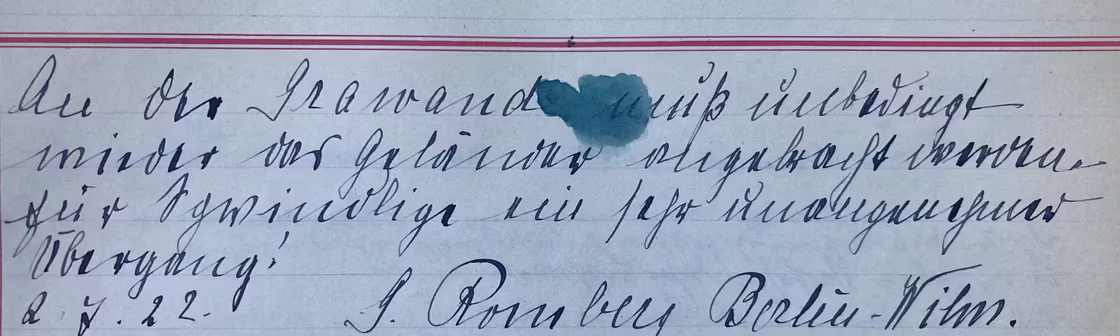 An der Grawand muß unbedingt
wieder das Geländer angebracht werden.
Für Schwindlige ein sehr unangenehmer
Übergang!
2. 7. 22. G. Romberg Berlin-Wilm.